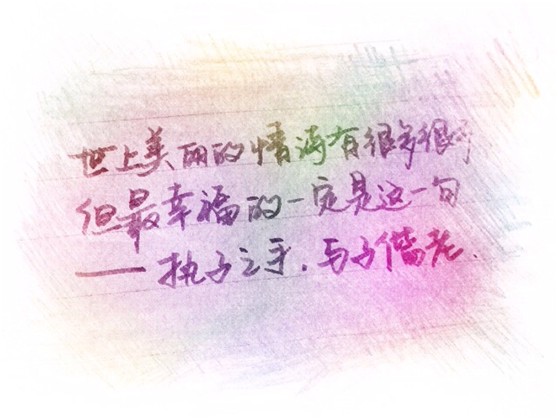 世上美丽的情词有很多很多
但最幸福的一定是这一句
——执子之手，与子偕老.